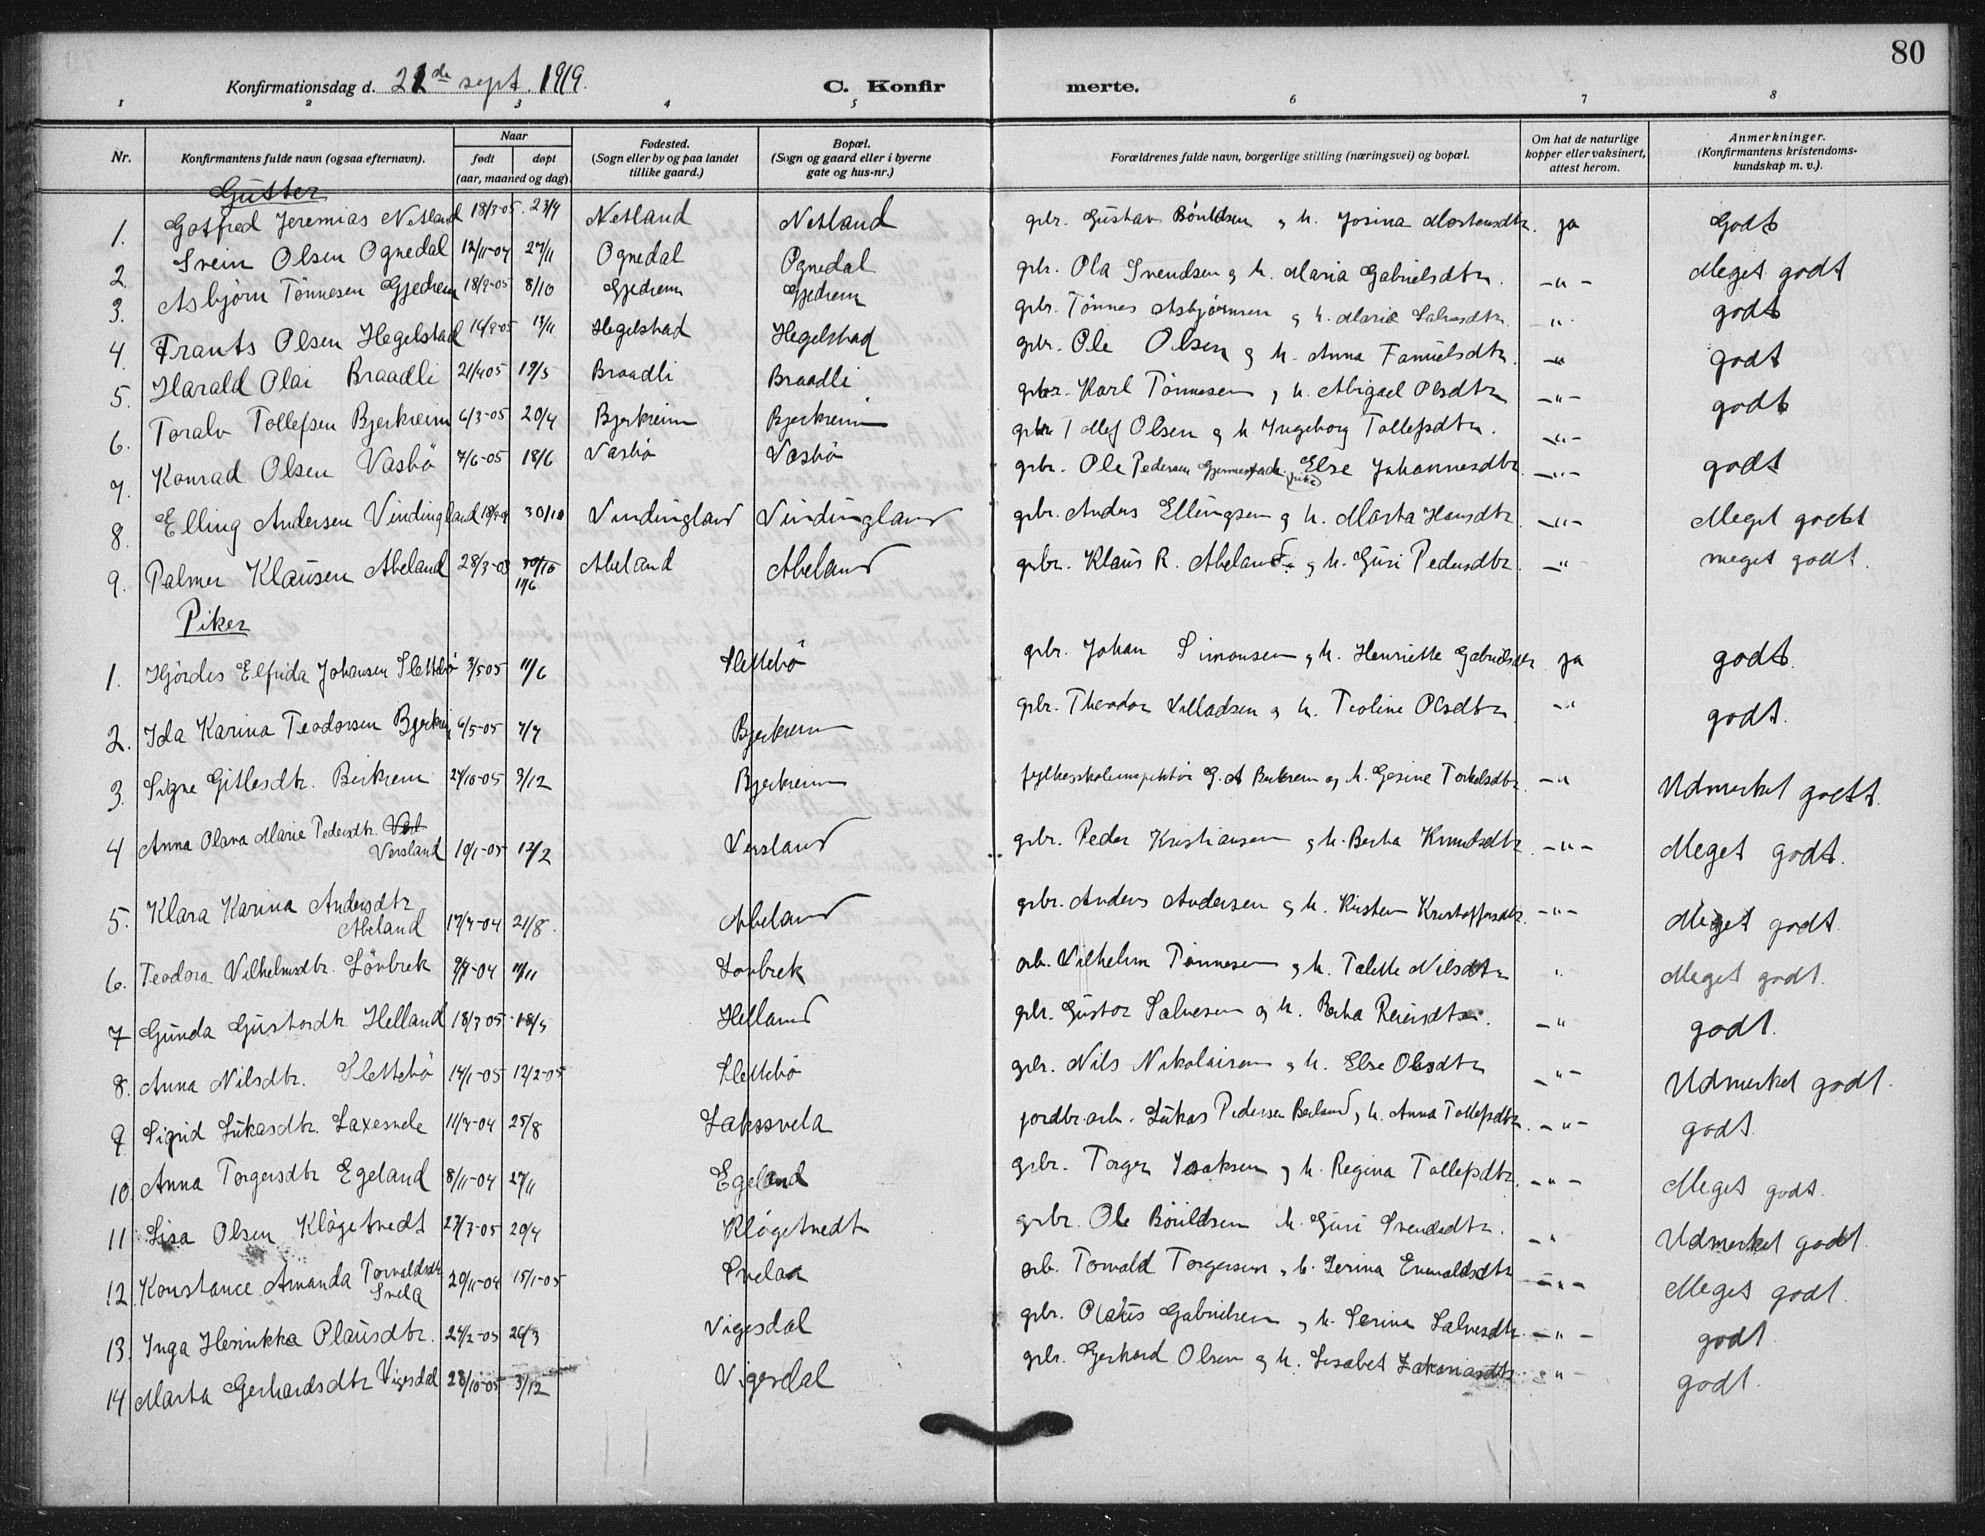 80
Konfirmationsdag d. 21de sept. 1919. C. Konfirmerte.
1 2 3 4 5 6 7 8
Nr. Konfirmantens fulde navn (ogsaa efternavn). Naar født døpt (aar, maaned og dag). Fødested. (Sogn eller by og paa landet tillike gaard.) Bopæl. (Sogn og gaard eller i byerne gate og hus-nr.) Forældrenes fulde navn, borgerlige stilling (næringsvei) og bopæl. Om hat de naturlige kopper eller vaksinert, attest herom. Anmerkninger. (Konfirmantens kristendoms-kundskap m. v.).
Gutter
1. Gotfred Jeremias Netland 18/3-05. 23/4 Netland Netland gbr. Gustav Bórildsen og h. Josina Mortensdtr. ja Godt
2. Svein Olsen Ognedal 12/11-04 27/11 Ognedal Ognedal gbr. Ola Svendsen og h. Maria Gabrielsdtr. -"- Meget godt
3. Asbjörn Tönnesen Gjedrem 18/9-05 8/10 Gjedrem Gjedrem gbr. Tönnes Asbjörnsen og h. Maria Salvesdtr. " godt
4 Frants Olsen Hegelstad 16/9-05 13/11 Hegelstad Hegelstad gbr. Ole Olsen og h. Anna Samuelsdtr. -" godt
5. Harald Olai Braadli 21/4 05 19/5 Braadli Braadli gbr. Karl Tönnesen og h. Abigael Olsdtr -"- godt
6. Toralv Tollefsen Bjerkreim 6/3-05 20/4 Bjerkreim Bjerkreim gbr Tollef Olsen og h Ingeborg Tollefsdtr. -"-
7. Konrad Olsen Vasbö 7/6-05 18/6 Vasbö Vasbö gbr. Ole Pedersen Gjermestad Else Johannesdtr -"- godt
8. Elling Andersen Vindingland 30/10 Vindingland Vindingland gbr. Anders Ellingsen og h. Marta Hansdtr -"- Meget godt
9. Palmer Klausen Abeland 28/3-05 30/10 11/6 Abeland Abeland gbr. Klaus R. Abeland. og h. Guri Pedersdtr. -" meget godt.
Piker
1. Hjördis Elfrida Johansen Slettebö 3/5 05 11/6 Slettebö gbr. Johan Simonsen og h. Henriette Gabrielsdtr ja godt.
2. Ida Karina Teodorsen Bjerkrei 6/5-05 7/7 Bjerkreim gbr. Theodor Villadsen og h. Teoline Olsdtr. -" godt.
3. Signe Gitlesdtr. Birkrem 24/10-05 3/12 Bjerkreim fylkesskoleinspektör G. A Berkrem og h. Gesine Torkelsdtr. -" Udmerket godt.
4 Anna Olava Marie Pedersdtr. Versland 10/1-05 12/2 Versland gbr. Peder Kristiansen og h. Berta Knudsdtr -"- Meget godt.
5. Klara Karina Andersdtr Abeland 17/7-04 21/8. Abeland gbr. Anders Andersen og h. Kirsten Kristoffersdtr. -"- Meget godt.
6. Teodora Vilhelmsdtr. Lövbrek 9/9-04 11/11 Lovbrek arb. Vilhelm Tönnesen og h. Talette Nilsdtr " Meget godt.
7 Gunda Gustavsdtr. Helland 18/3-05 18/5 Helland gbr. Gustav Salvesen og h. Berta Reiersdtr. -" godt.
8. Anna Nilsdtr. Slettebö 14/1-05 12/2-05 Slettebö gbr. Nils Nikolaisen og h. Else Olsdtr -"- Udmerket godt.
9. Sigrid Lukasdtr. Laxesvele 11/7-04 25/8 Lakssvela jordbr.arb. Lukas Pedersen Berland, h. Anna Tollefsdtr. -"- godt.
10. Anna Torgersdtr Egeland 8/11-04 27/11 Egeland gbr. Torger Isaksen og h. Regina Tollefsdtr. -"- Meget godt.
11. Lisa Olsen Klögetvedt 27/3-05 29/4 Klögetvedt gbr. Ole Böríldsen h. Guri Svendsdtr. -" Udmerket godt.
12. Konstance Amanda Torvaldsdtr Svela 29/11-04 15/1-05 Svelaa arb. Torvald Torgersen og h. Serina Enevaldsdtr -"- Meget godt.
13. Inga Henrikka Olausdtr. 24/2-05 26/3 Vigesdal gbr. Olaus Gabrielsen og h. Serina Salvesdtr. -"- godt.
14 Marta Gerhardsdtr Vigesdal 28/10-05 3/12 Vigesdal gbr. Gerhard Olsen og h. Lisabet Zakariasdtr. " godt.